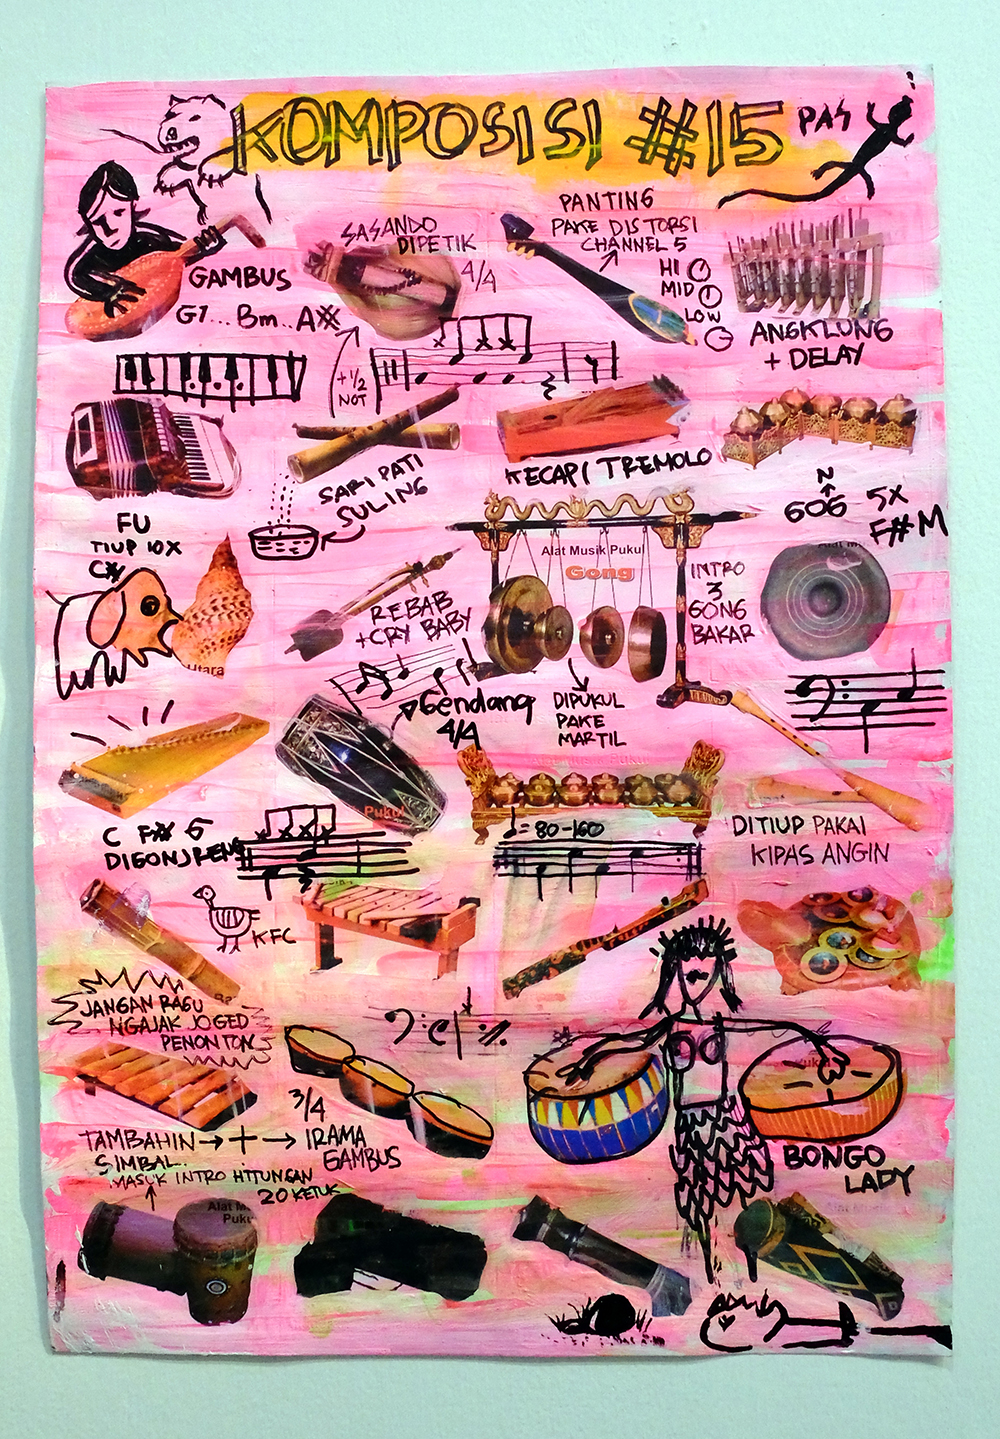 KOMPOSISI #15
PAS
GAMBUS
G7...Bm..A#
SASANDO
DIPETIK
4/4
PANTING
PAKE DISTORSI
CHANNEL 5
HI
MID
LOW
ANGKLUNG
+ DELAY
+ 1/2
NOT
SARI PATI
SULING
KECAPI TREMOLO
N
GOG 5X
F#M
FU
TIUP 10X
C#
Utara
REBAB
+CRY BABY
Alat Musik Pukul
Gong
INTRO
3
GONG
BAKAR
Gendang
4/4
DIPUKUL
PAKE
MARTIL
Pukul
C F# G
DIGONJRENG
♩=80-160
DITIUP PAKAI
KIPAS ANGIN
KFC
JANGAN RAGU
NGAJAK JOGED
PENONTON
3/4
TAMBAHIN → + → IRAMA
GAMBUS
SIMBAL
MASUK INTRO HITUNGAN
20 KETUK
BONGO
LADY
Alat M
Puku